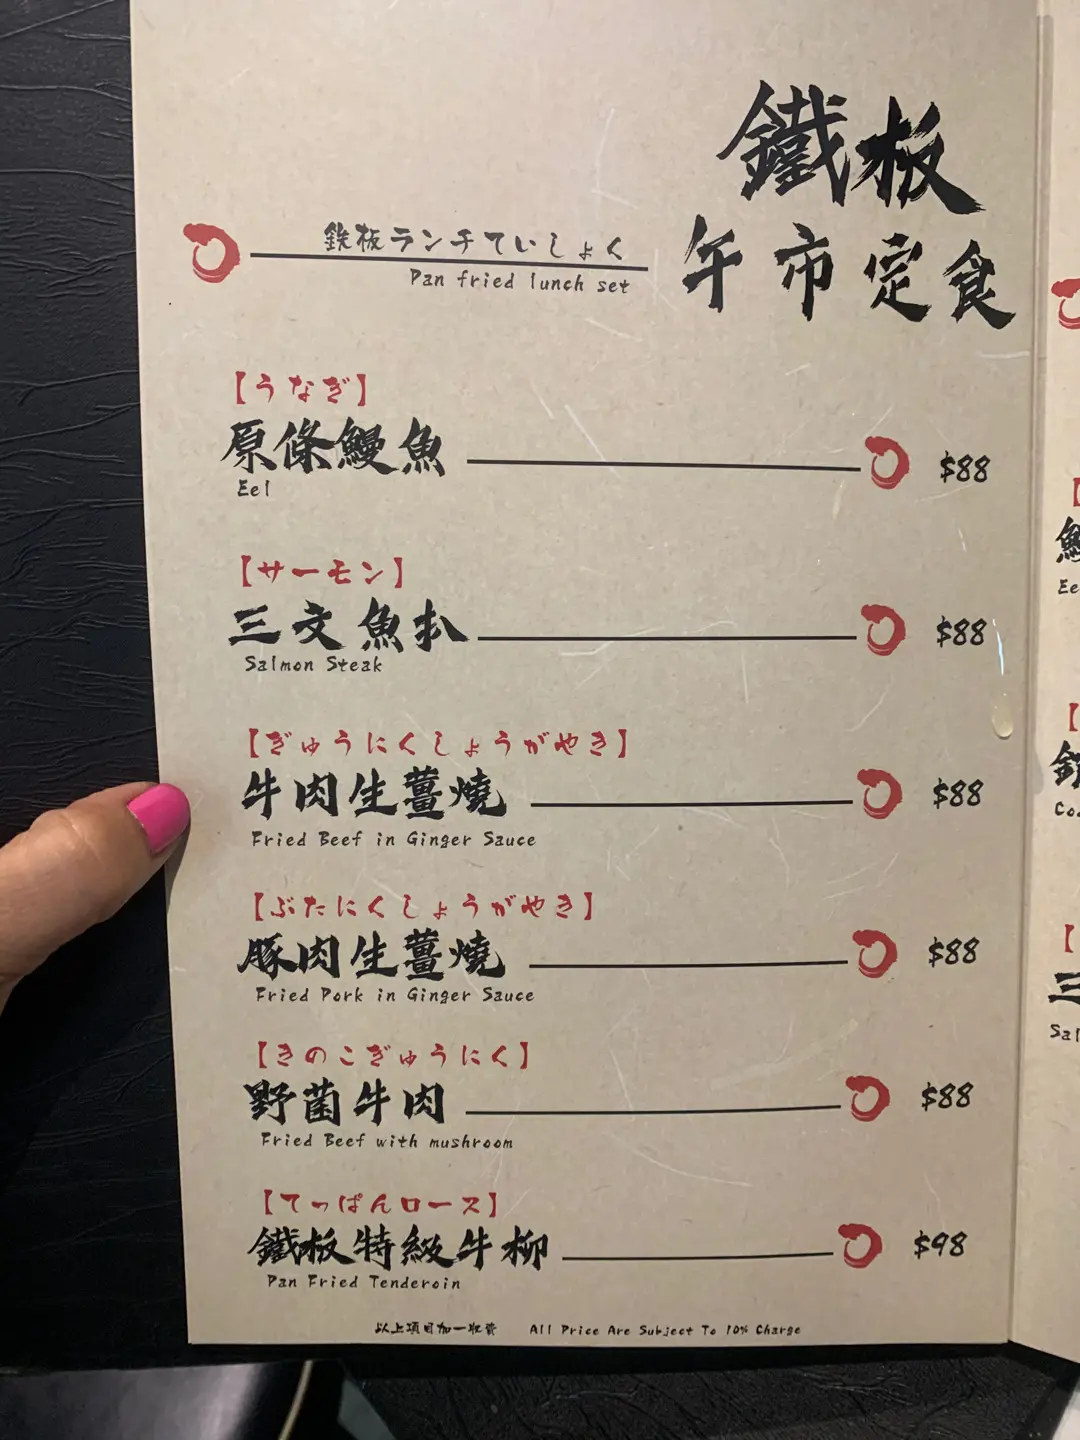 鐵板
午市定食
鉄板ランチていしょく
Pan fried lunch set
【うなぎ】
原條鰻魚 $88
Eel
【サーモン】
三文魚扒 $88
Salmon Steak
【ぎゅうにくしょうがやき】
牛肉生薑燒 $88
Fried Beef in Ginger Sauce
【ぶたにくしょうがやき】
豚肉生薑燒 $88
Fried Pork in Ginger Sauce
【きのこぎゅうにく】
野菌牛肉 $88
Fried Beef with mushroom
【てっぱんロース】
鐵板特級牛柳 $98
Pan Fried Tenderoin
以上項目加一收費 All Price Are Subject To 10% Charge